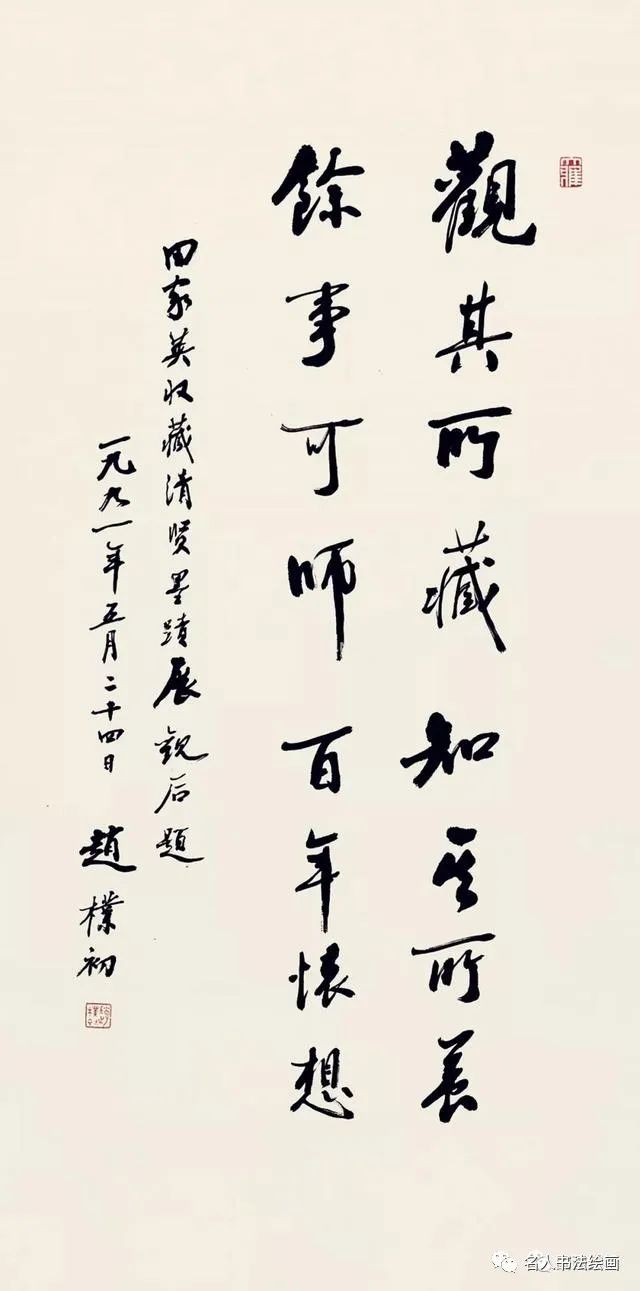 觀其所藏知其所养
餘事可师百年懐想
田家英收藏清贤墨蹟展观后题
一九九一年五月二十四日
趙樸初
名人书法绘画